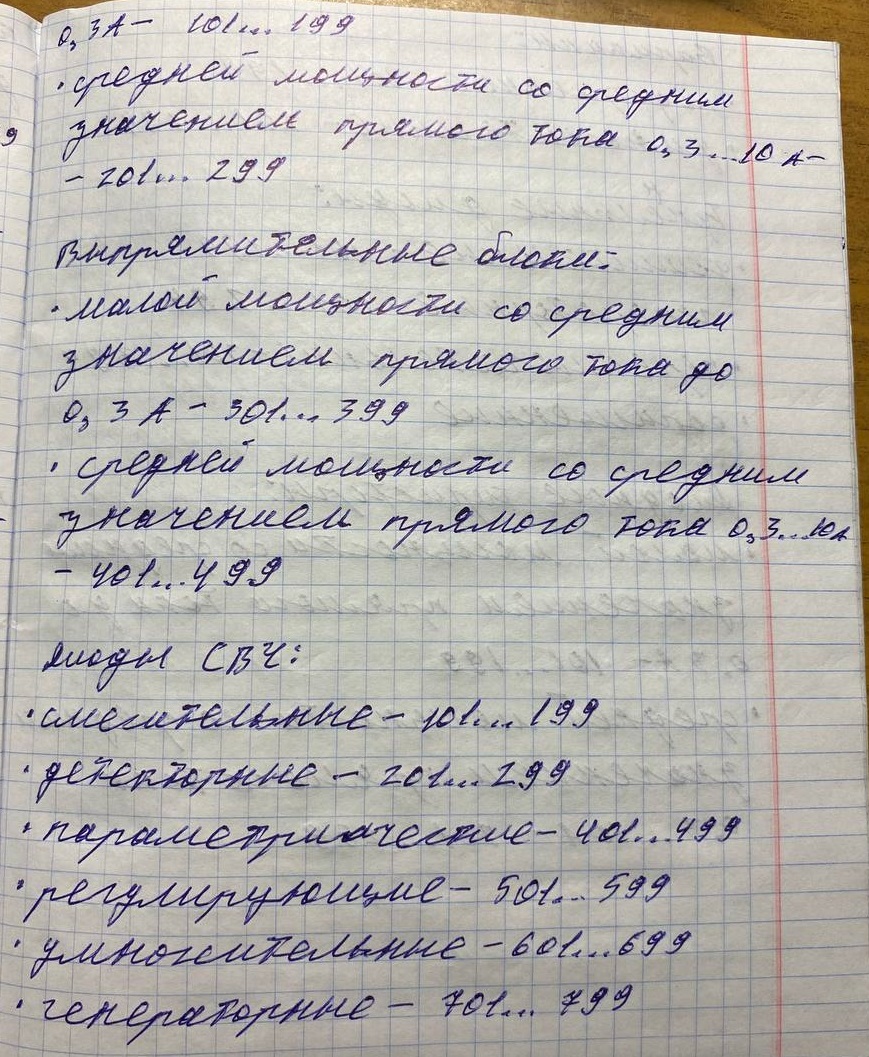 0,3А – 101... 199
· средней мощности со средним
значением прямого тока 0,3...10 А –
– 201... 299
Выпрямительные блоки:
· малой мощности со средним
значением прямого тока до
0,3 А – 301... 399
· средней мощности со средним
значением прямого тока 0,3...10А
– 401...499
Диоды СВЧ:
· смесительные – 101... 199
· детекторные – 201... 299
· параметрические – 401...499
· регулирующие – 501... 599
· умножительные – 601...699
· генераторные – 701... 799
9